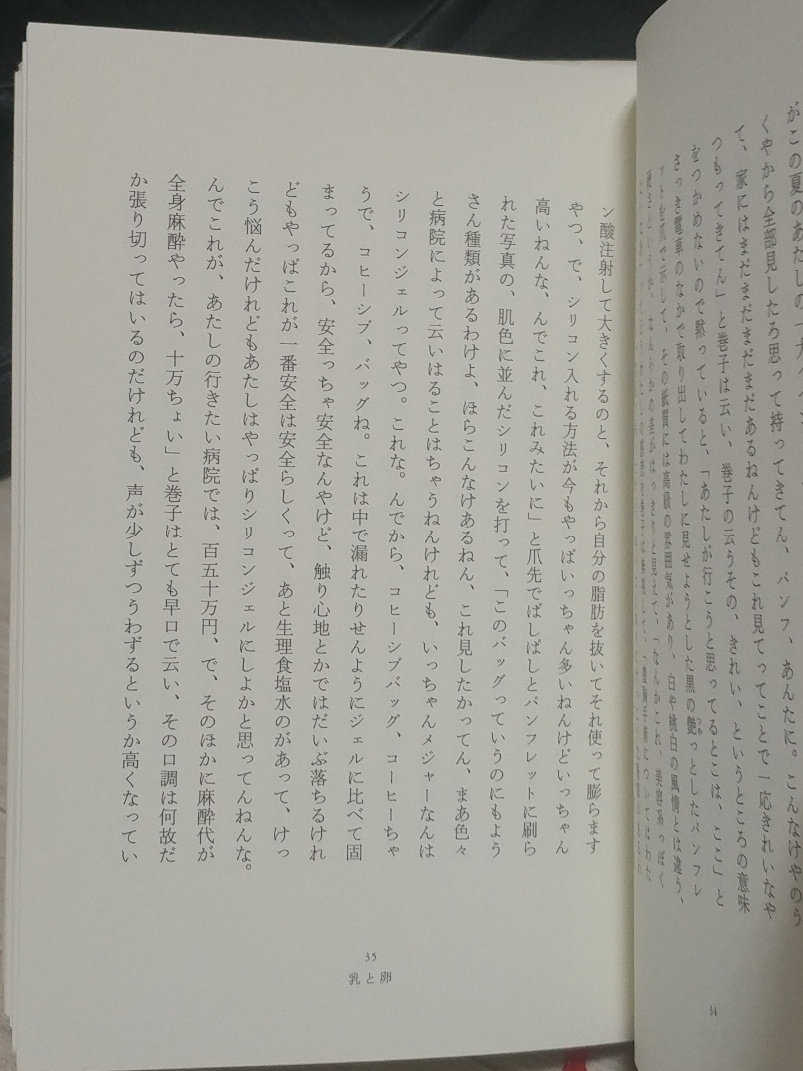 がこの夏のあたしの
くやから全部見したろ思って持ってきてん、パンフ、あんたに。こんなけやのう
て、家にはまだまだまだまだあるねんけどもこれ見てってことで一応きれいなや
つもってきてん」と巻子は云い、巻子の云うその、きれい、というところの意味
をつかめないので黙っていると、「あたしが行こうと思ってるとこは、ここ」と
さっき電車のなかで取り出してわたしに見せようとした黒の艶っとしたパンフレ
ットを爪で示して、その紙質には高級の雰囲気があり、白や桃白の風情とは違う、
硬さというか、なんらかの差がはっきりと見えて、「なんかこれ、美容系っぽく
「豊胸手術についてはわた
34
ン酸注射して大きくするのと、それから自分の脂肪を抜いてそれ使って膨らます
やつ、で、シリコン入れる方法が今もやっぱいっちゃん多いねんけどいっちゃん
高いねんな、んでこれ、これみたいに」と爪先でばしばしとパンフレットに刷ら
れた写真の、肌色に並んだシリコンを打って、「このバッグっていうのにもよう
さん種類があるわけよ、ほらこんなけあるねん、これ見したかってん、まあ色々
と病院によって云いはることはちゃうねんけれども、いっちゃんメジャーなんは
シリコンジェルってやつ。これな。んでから、コヒーシブバッグ、コーヒーちゃ
うで、コヒーシブ、バッグね。これは中で漏れたりせんようにジェルに比べて固
まってるから、安全っちゃ安全なんやけど、触り心地とかではだいぶ落ちるけれ
どもやっぱこれが一番安全は安全らしくって、あと生理食塩水のがあって、けっ
こう悩んだけれどもあたしはやっぱりシリコンジェルにしよかと思ってんねんな。
んでこれが、あたしの行きたい病院では、百五十万円、で、そのほかに麻酔代が
全身麻酔やったら、十万ちょい」と巻子はとても早口で云い、その口調は何故だ
か張り切ってはいるのだけれども、声が少しずつうわずるというか高くなってい
35
乳と卵